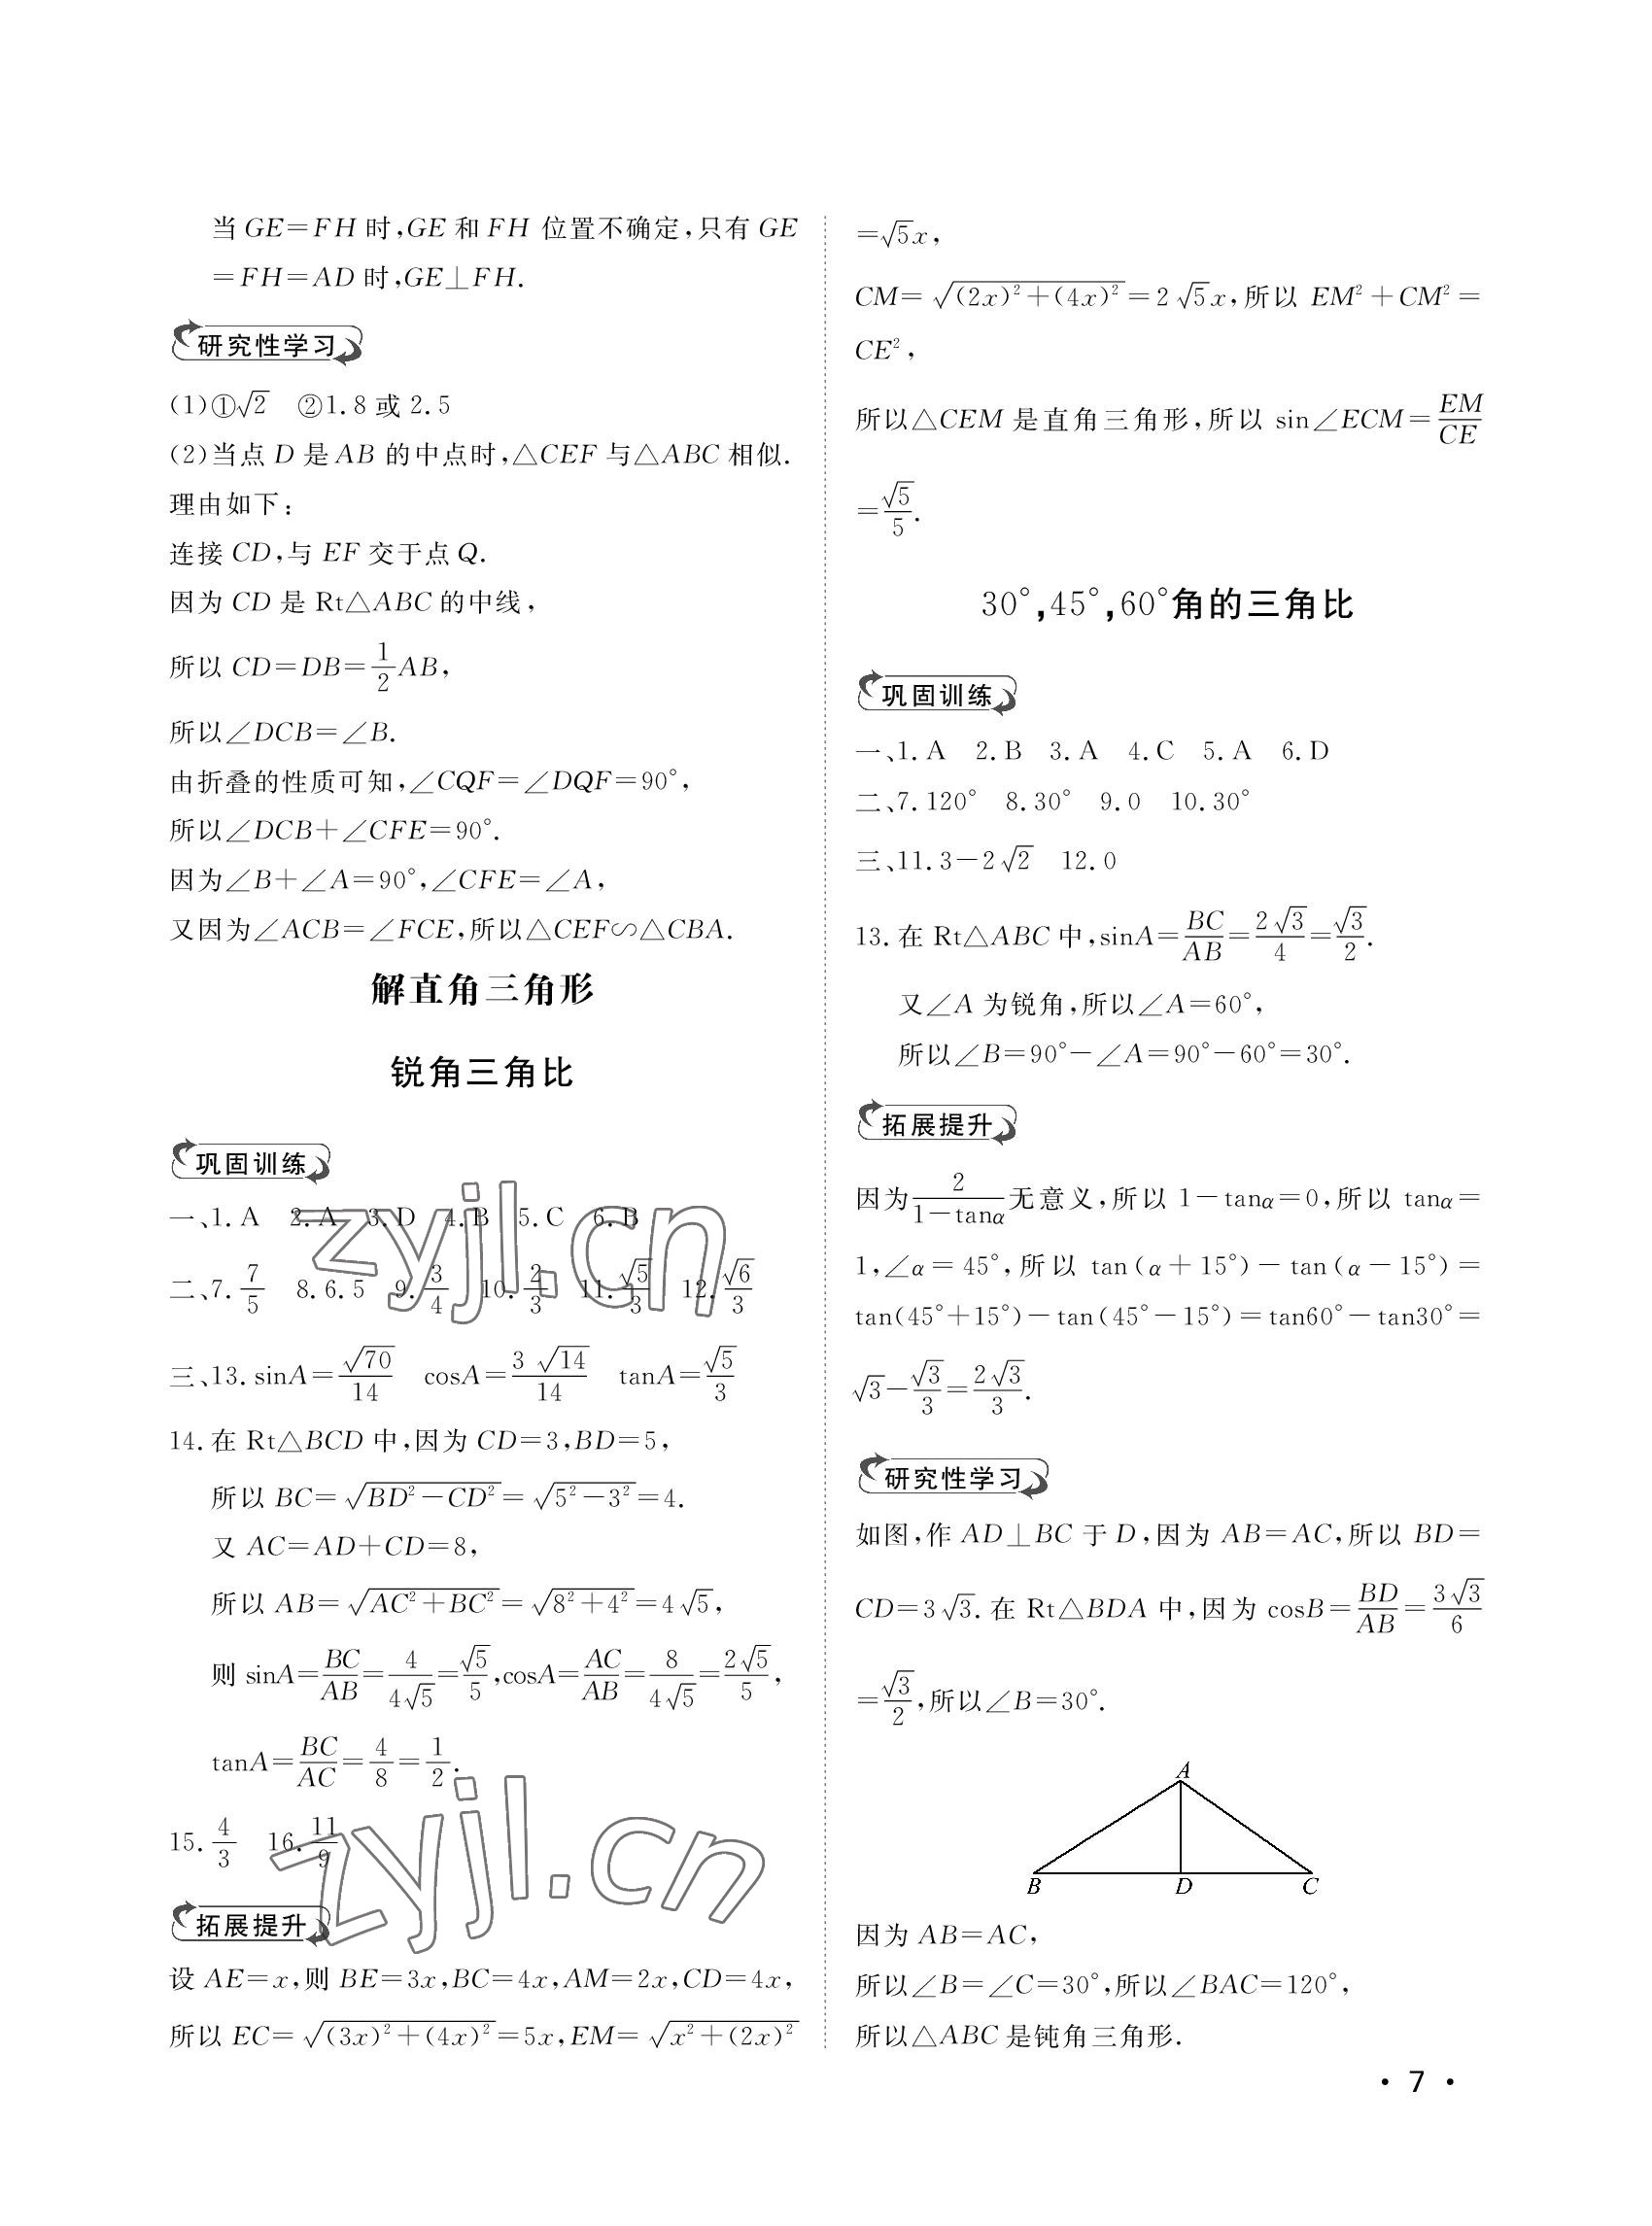 当 GE=FH 时,GE 和 FH 位置不确定,只有 GE
=FH=AD 时,GE⊥FH.
研究性学习
(1)①√2 ②1.8 或 2.5
(2)当点 D 是 AB 的中点时,△CEF 与△ABC 相似.
理由如下:
连接 CD,与 EF 交于点 Q.
因为 CD 是 Rt△ABC 的中线,
所以 CD=DB=1/2 AB,
所以∠DCB=∠B.
由折叠的性质可知,∠CQF=∠DQF=90°,
所以∠DCB+∠CFE=90°.
因为∠B+∠A=90°,∠CFE=∠A,
又因为∠ACB=∠FCE,所以△CEF∽△CBA.
解直角三角形
锐角三角比
巩固训练
一、1.A 2.A 3.D 4.B 5.C 6.B
二、7. 7/5 8.6.5 9. 3/4 10. 2/3 11. √5/3 12. √6/3
三、13. sinA=√70/14 cosA=3√14/14 tanA=√5/3
14. 在 Rt△BCD 中,因为 CD=3,BD=5,
所以 BC=√(BD²-CD²)=√(5²-3²)=4.
又 AC=AD+CD=8,
所以 AB=√(AC²+BC²)=√(8²+4²)=4√5,
则 sinA=BC/AB=4/(4√5)=√5/5,cosA=AC/AB=8/(4√5)=2√5/5,
tanA=BC/AC=4/8=1/2.
15. 4/3 16. 11/9
拓展提升
设 AE=x,则 BE=3x,BC=4x,AM=2x,CD=4x,
所以 EC=√((3x)²+(4x)²)=5x,EM=√(x²+(2x)²)
=√5x,
CM=√((2x)²+(4x)²)=2√5x,所以 EM²+CM²=
CE²,
所以△CEM 是直角三角形,所以 sin∠ECM=EM/CE
=√5/5.
30°,45°,60°角的三角比
巩固训练
一、1.A 2.B 3.A 4.C 5.A 6.D
二、7.120° 8.30° 9.0 10.30°
三、11.3-2√2 12.0
13. 在 Rt△ABC 中,sinA=BC/AB=2√3/4=√3/2.
又∠A 为锐角,所以∠A=60°,
所以∠B=90°-∠A=90°-60°=30°.
拓展提升
因为2/(1-tanα)无意义,所以 1-tanα=0,所以 tanα=
1,∠α=45°,所以 tan(α+15°)-tan(α-15°)=
tan(45°+15°)-tan(45°-15°)=tan60°-tan30°=
√3-√3/3=2√3/3.
研究性学习
如图,作 AD⊥BC 于 D,因为 AB=AC,所以 BD=
CD=3√3. 在 Rt△BDA 中,因为 cosB=BD/AB=3√3/6
=√3/2,所以∠B=30°.
A
B D C
因为 AB=AC,
所以∠B=∠C=30°,所以∠BAC=120°,
所以△ABC 是钝角三角形.
· 7 ·
zyjl.cn
zyjl.cn